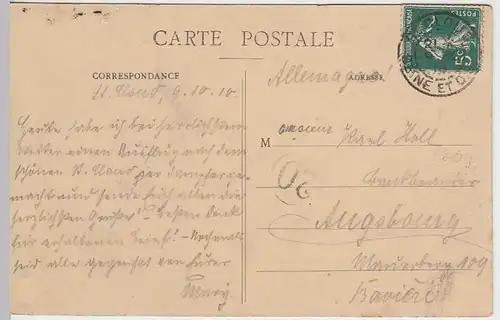 CARTE POSTALE
CORRESPONDANCE
ADRESSE
Allemagne
St. Cloud, 9.10.10
Heute habe ich bei herrlichstem
Wetter einen Ausflug nach dem
schönen St. Cloud per Dampfer ge-
macht und sende Euch allen die
herzlichsten Grüße! Besten Dank
für erhaltenen Brief! Nochmals
seid alle gegrüßt von Eurer
Mary.
M onsieur Karl Holl
Augsbourg
Mauerberg 109
Bavière
5c
SEINE ET OISE